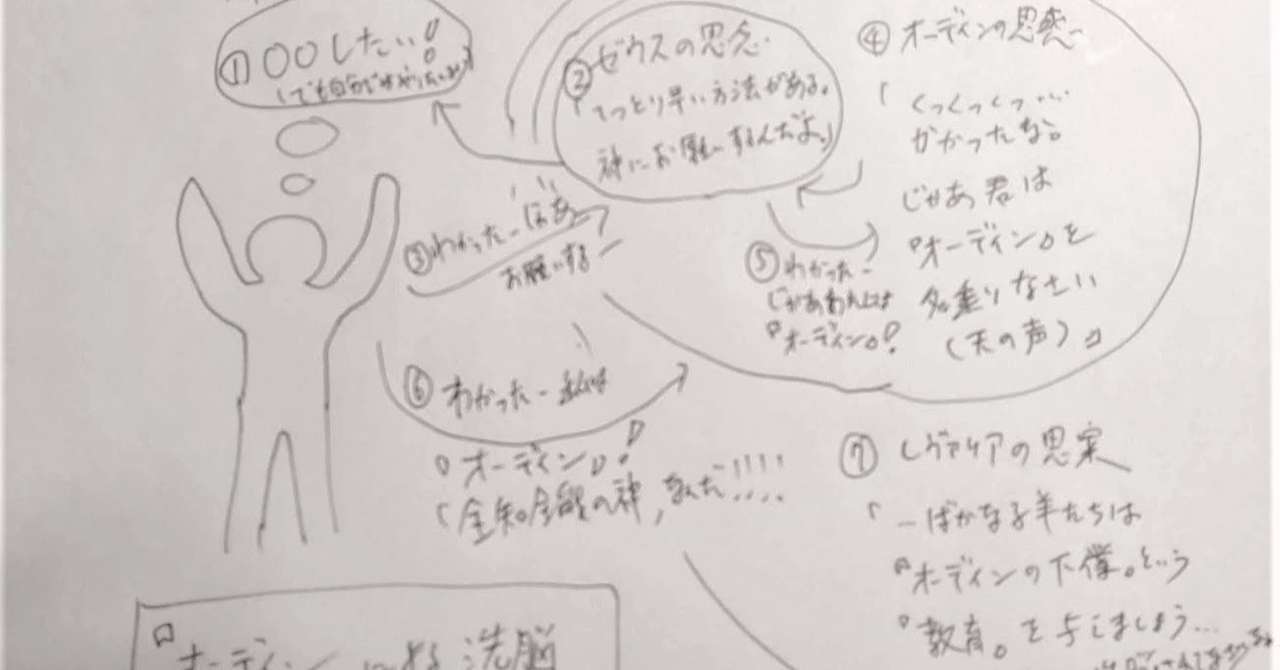 ① 〇〇したい!
② ゼウスの思念
「てっとり早い方法がある。
神にお願いするんだよ。」
③ わかったー じゃあ
お願いするー
④ オーディンの思惑
「くっくっくっ…
かかったな。
じゃあ君は
『オーディン』を
名乗りなさい
(天の声)」
⑤ わかったー
じゃあわれは
『オーディン』!
⑥ わかったー 私は
『オーディン』!
「全知全能の神、なんだ!!!!
⑦ レヴァリアの思案
「ーばかな子羊たちは
『オーディンの下僕』という
『教育』を与えましょう…
『オーディン による洗脳